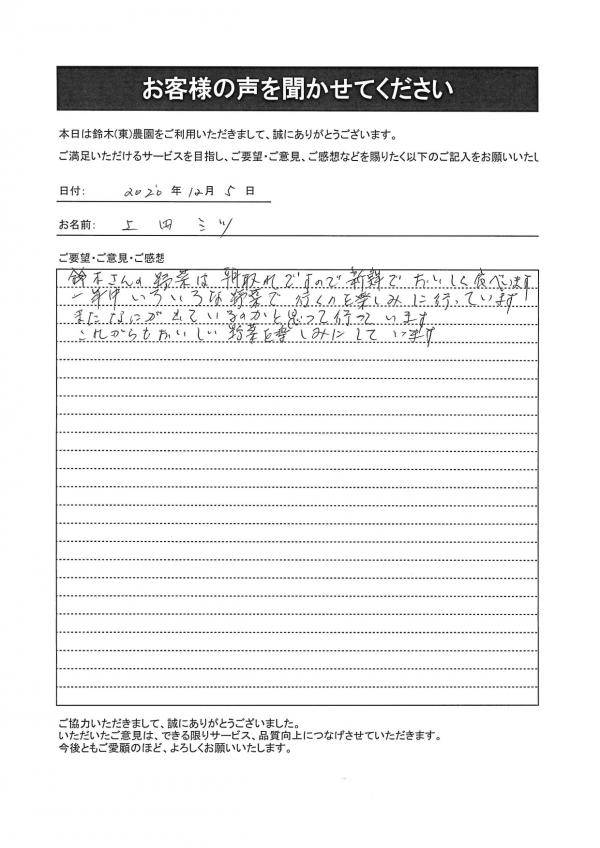 お客様の声を聞かせてください
本日は鈴木(東)農園をご利用いただきまして、誠にありがとうございます。
ご満足いただけるサービスを目指し、ご要望・ご意見、ご感想などを賜りたく以下のご記入をお願いいたし
日付: 2020年12月5日
お名前: 上田ミツ
ご要望・ご意見・ご感想
鈴木さんの野菜は朝取れですので新鮮でおいしく食べています!
一年中いろいろな野菜で行くのを楽しみに行っています!
またなにが出ているのかと思って行っています
これからもおいしい野菜を楽しみにしています
ご協力いただきまして、誠にありがとうございました。
いただいたご意見は、できる限りサービス、品質向上につなげさせていただきます。
今後ともご愛顧のほど、よろしくお願いいたします。